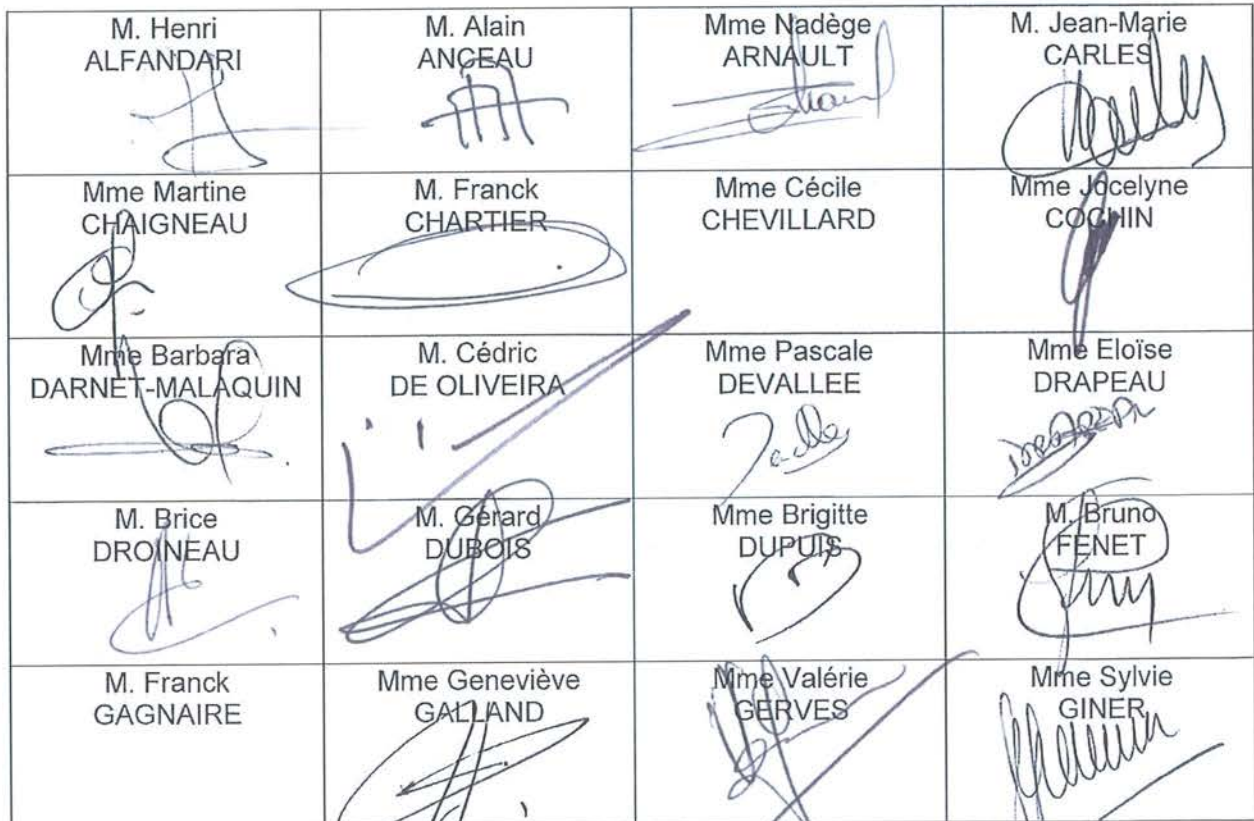 M. Henri
ALFANDARI
M. Alain
ANCEAU
Mme Nadège
ARNAULT
M. Jean-Marie
CARLES
Mme Martine
CHAIGNEAU
M. Franck
CHARTIER
Mme Cécile
CHEVILLARD
Mme Jocelyne
COCHIN
Mme Barbara
DARNET-MALAQUIN
M. Cédric
DE OLIVEIRA
Mme Pascale
DEVALLEE
Mme Eloïse
DRAPEAU
M. Brice
DROINEAU
M. Gérard
DUBOIS
Mme Brigitte
DUPUIS
M. Bruno
FENET
M. Franck
GAGNAIRE
Mme Geneviève
GALLAND
Mme Valérie
GERVES
Mme Sylvie
GINER